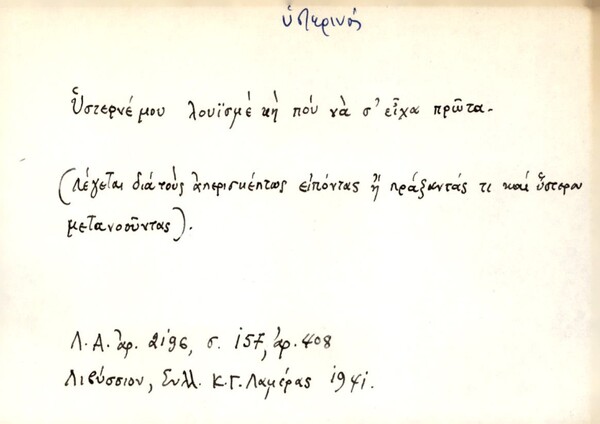 ὑστερινός
Ὑστερνέ μου λουϊσμέ κὴ ποὺ νὰ σ' εἶχα πρῶτα.
(Λέγεται διὰ τοὺς ἀπερισκέπτως εἰπόντας ἢ πράξαντάς τι καὶ ὕστερον
μετανοοῦντας).
Λ.Α. ἀρ. 2196, σ. 157, ἀρ. 408
Λιβύσσιον, Συλλ. Κ.Γ. Λαμέρας 1941.